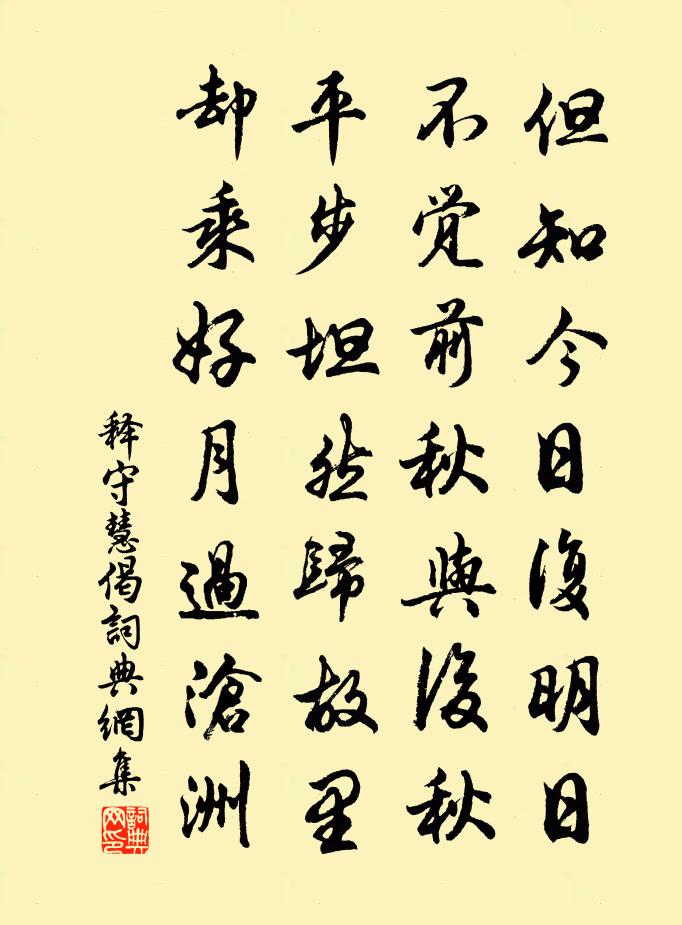 但知今日復明日
不覚前秋與後秋
平步坦然歸故里
却乘好月過滄洲
释守慧偈詞典網集
詞典
网印